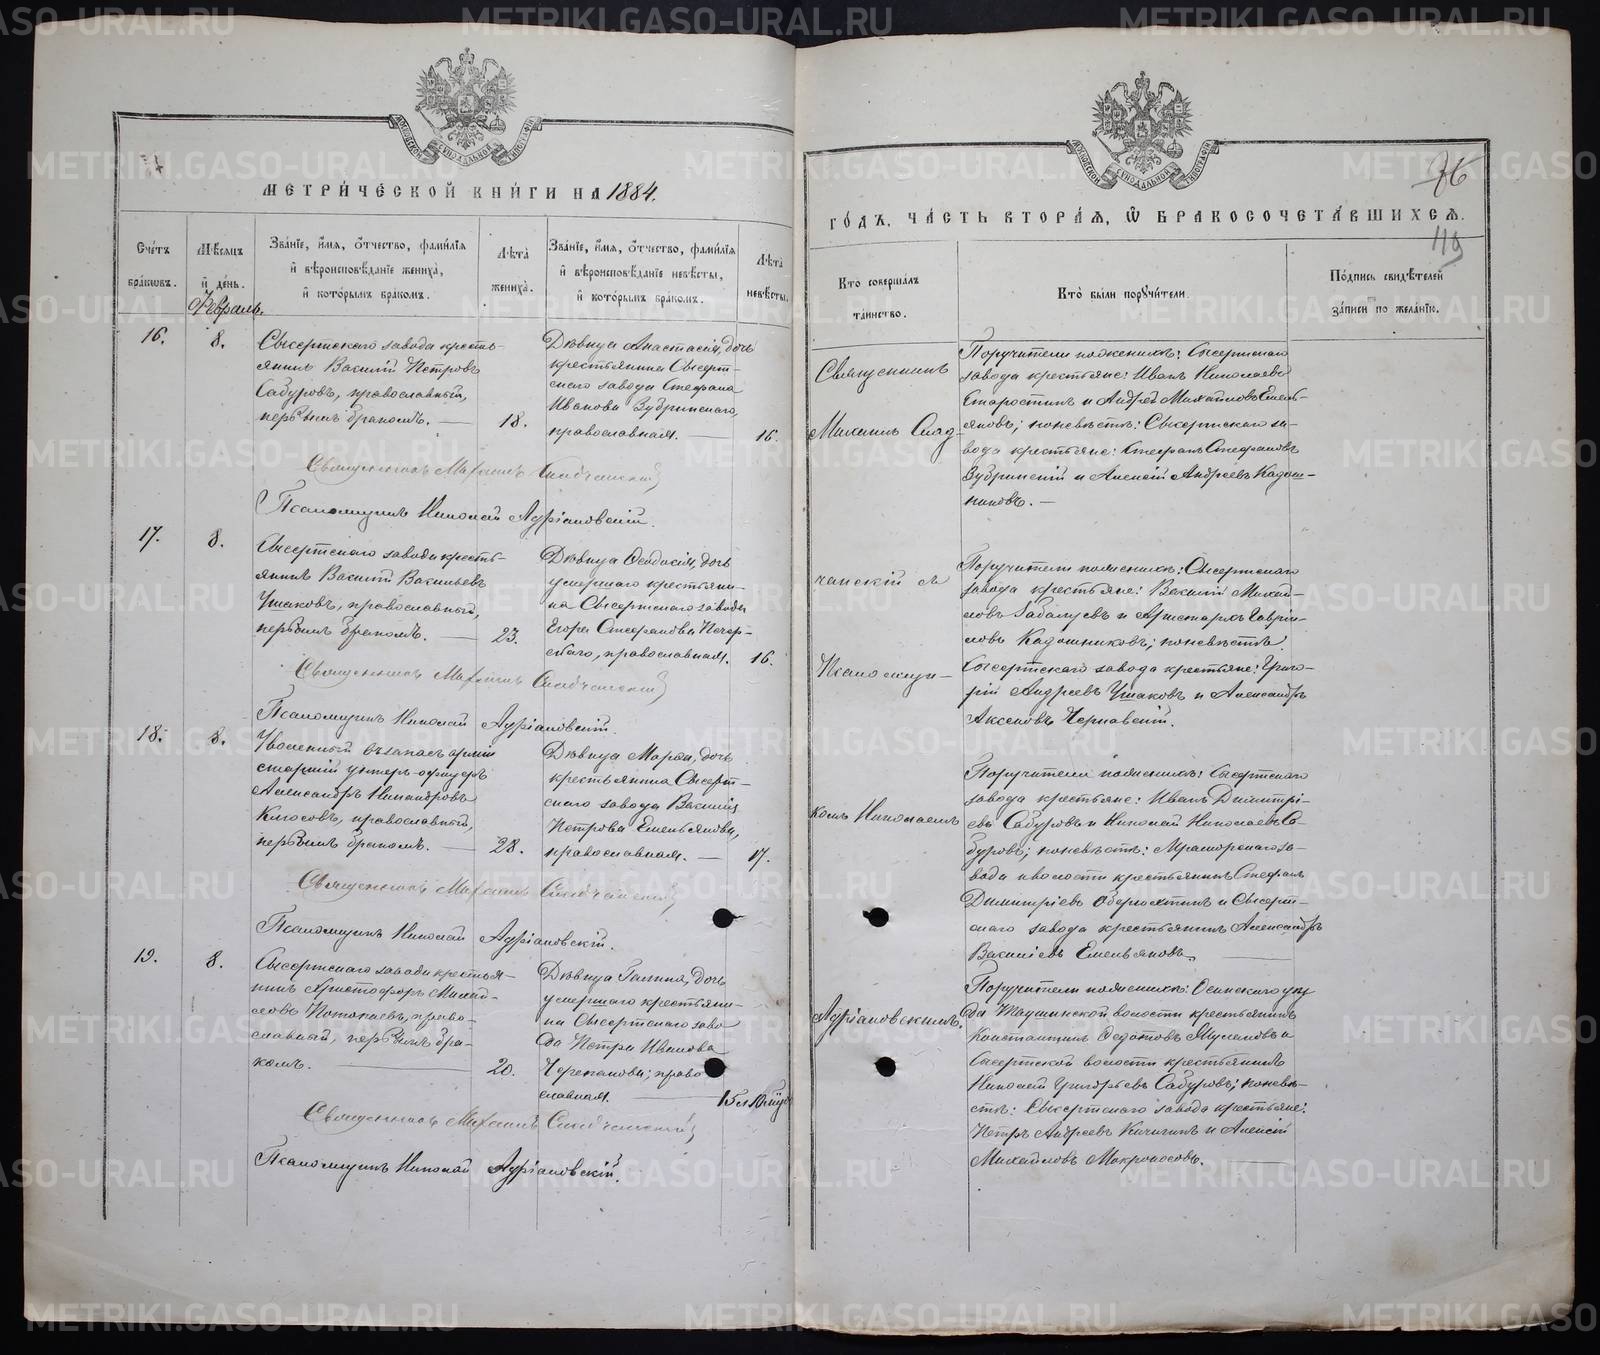 МЕТРИ́ЧЕСКОЙ КНИ́ГИ НА 1884.
Счетъ бра́ковъ.
Мѣ́сяцъ и́ де́нь.
Зва́нїе, и҆́мя, ѻ҆́тчество, фами́лїя и҆ вѣроисповѣ́данїе жениха̀, и҆ кото́рымъ бра́комъ.
Лѣ́та жениха̀.
Зва́нїе, и҆́мя, ѻ҆́тчество, фами́лїя и҆ вѣроисповѣ́данїе невѣ́сты, и҆ кото́рымъ бра́комъ.
Лѣ́та невѣ́сты.
Февраль.
16.
8.
Сысертскаго завода кресть-
янинъ Василій Петровъ
Сабуровъ, православный,
первымъ бракомъ.
18.
Дѣвица Анастасія, дочь
крестьянина Сысерт-
скаго завода Стефана
Иванова Зубринскаго,
православная.
16.
Священникъ Михаилъ
Псаломщикъ Николай Адріановскій.
17.
8.
Сысертскаго завода кресть-
янинъ Василій Васильевъ
Ушаковъ, православный,
первымъ бракомъ.
23.
Дѣвица Ѳеодосія, дочь
умершаго крестьяни-
на Сысертскаго завода
Егора Стефанова Печер-
скаго, православная.
16.
Священникъ Михаилъ
Псаломщикъ Николай Адріановскій.
18.
8.
Уволенный въ запасъ арміи
старшій унтеръ-офицеръ
Александръ Никандровъ
православный,
первымъ бракомъ.
28.
Дѣвица Марья, дочь
крестьянина Сысерт-
скаго завода Василія
Петрова Емельянова,
православная.
17.
Священникъ Михаилъ
Псаломщикъ Николай Адріановскій.
19.
8.
Сысертскаго завода крестья-
нинъ Христофоръ Михай-
ловъ право-
славный, первымъ бра-
комъ.
20.
Дѣвица Галина, дочь
умершаго крестьяни-
на Сысертскаго заво
да Петра Иванова
Черепанова; право
славная.
Священникъ Михаилъ
Псаломщикъ Николай Адріановскій.
76
119
ГО́ДЪ, ЧА́СТЬ ВТОРА́Я, Ѽ БРАКОСОЧЕТА́ВШИХСЯ.
Кто̀ соверша́лъ та́инство.
Кто̀ бы́ли порꙋчи́тели.
По́дпись свидѣ́телей за́писи по жела́нїю.
Священникъ
Михаилъ
чанскій съ
Псаломщи-
комъ Николаемъ
Адріановскимъ.
Поручители по женихѣ: Сысертскаго
завода крестьяне: Иванъ Николаевъ
Старостинъ и Андрей Михайловъ Емель-
яновъ; по невѣстѣ: Сысертскаго за-
вода крестьяне: Стефанъ Стефановъ
Зубринскій и Алексій Андреевъ Кадош-
никовъ.
Поручители по женихѣ: Сысертскаго
завода крестьяне: Василій Михай-
ловъ и Аристархъ Гаврии-
ловъ Кадошниковъ; по невѣстѣ:
Сысертскаго завода крестьяне: Григо-
рій Андреевъ Ушаковъ и Александръ
Аксеновъ Чернавскій.
Поручители по женихѣ: Сысертскаго
завода крестьяне: Иванъ Димитрі-
евъ Сабуровъ и Николай Николаевъ Са-
буровъ; по невѣстѣ: Мраморскаго за-
вода и волости крестьянинъ Стефанъ
Димитріевъ и Сысерт-
скаго завода крестьянинъ Александръ
Василіевъ Емельяновъ.
Поручители по женихѣ: Осинскаго уѣз
да волости крестьянинъ
Константинъ Ѳедотовъ и
Сысертской волости крестьянинъ
Николай Григорьевъ Сабуровъ; по невѣ-
стѣ: Сысертскаго завода крестьяне:
Петръ Андреевъ Кичигинъ и Алексій
Михайловъ Мокроносовъ.
METRIKI.GASO-URAL.RU